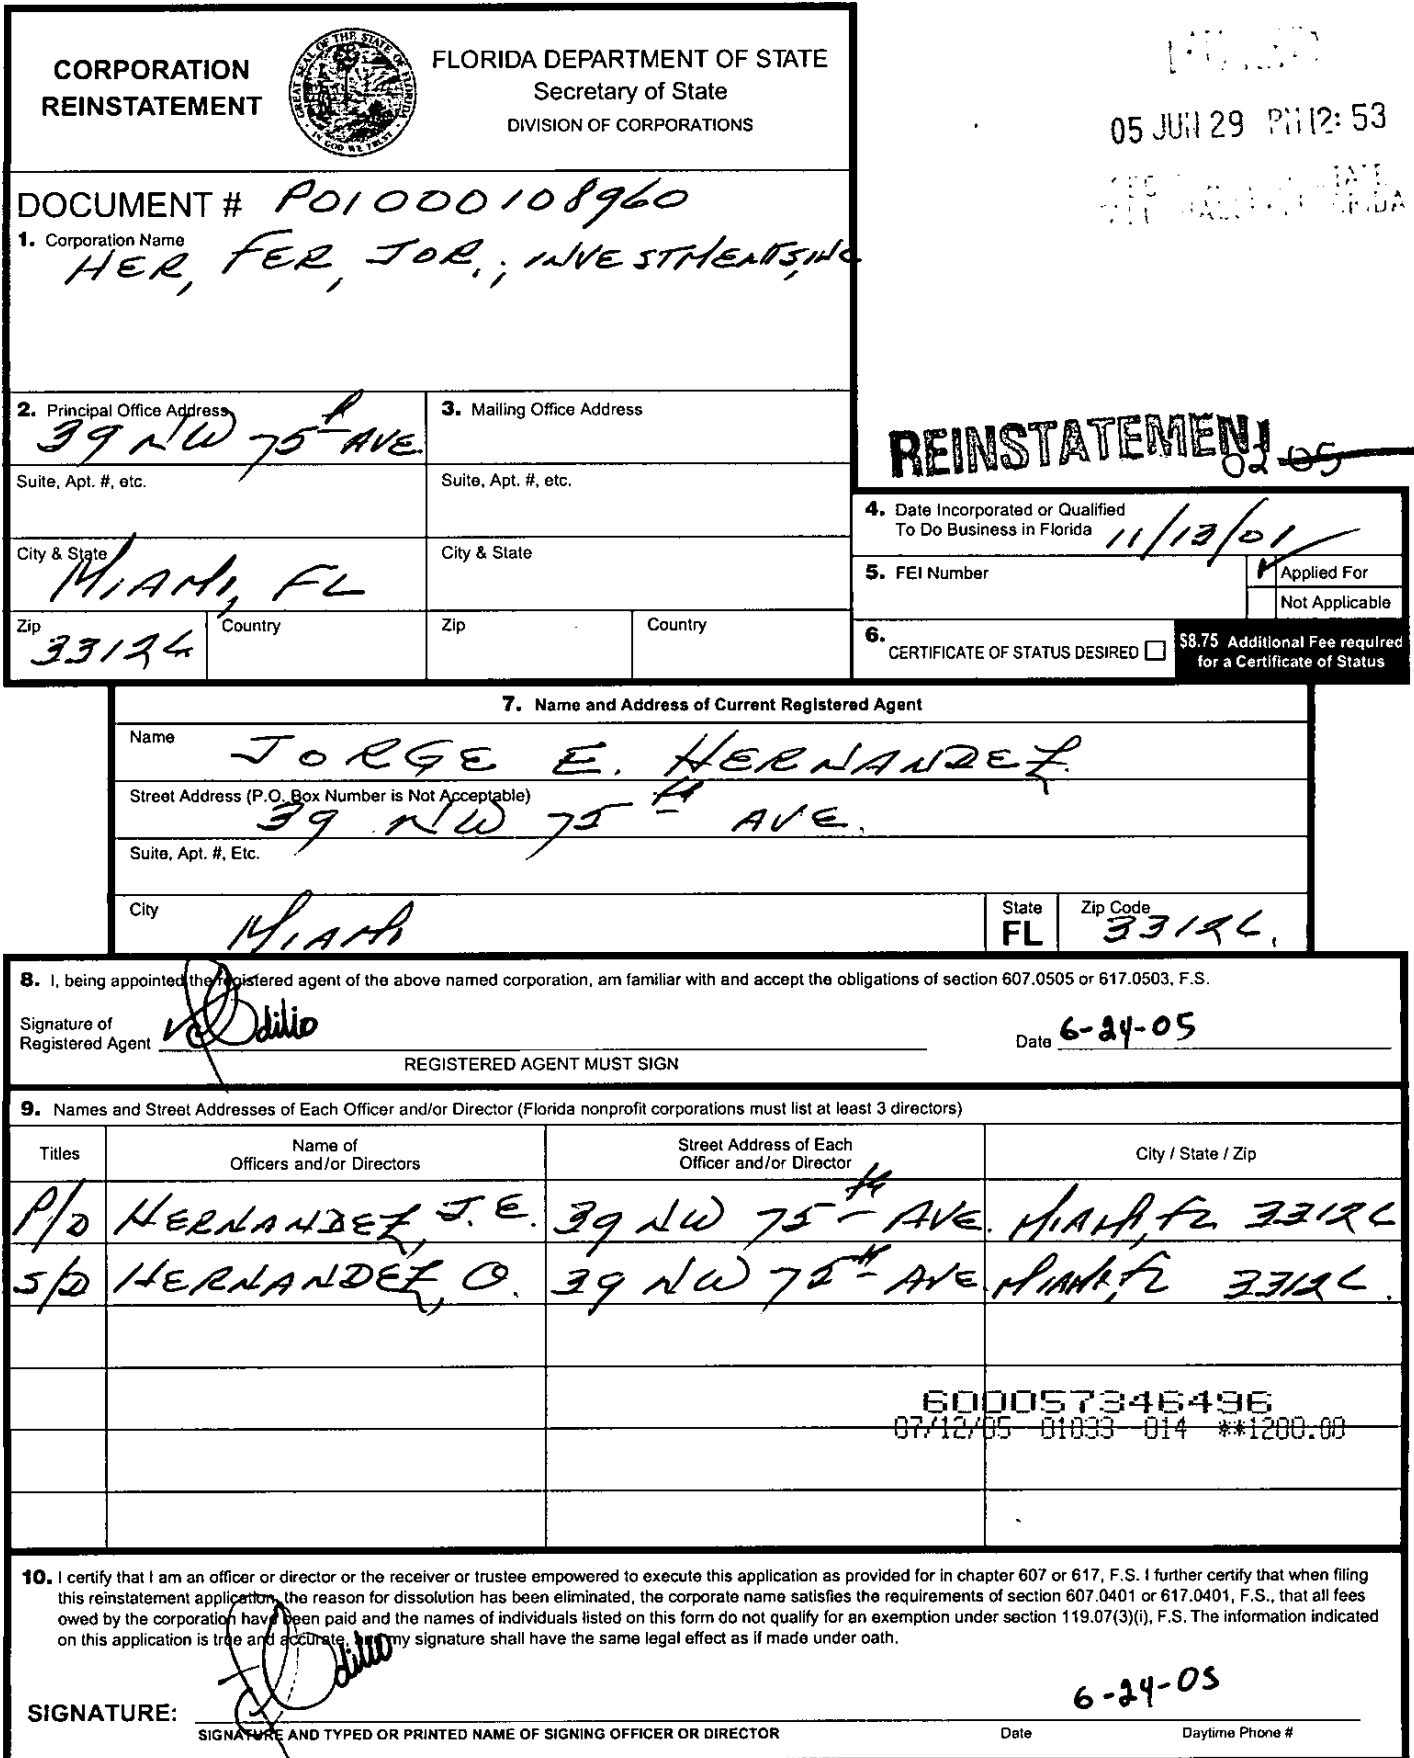 CORPORATION
REINSTATEMENT
GREAT SEAL OF THE STATE OF FLORIDA
IN GOD WE TRUST
FLORIDA DEPARTMENT OF STATE
Secretary of State
DIVISION OF CORPORATIONS
05 JUN 29 PM 12:53
DOCUMENT # P01000108960
1. Corporation Name
HER, FER, JOR,; INVESTMENTS, INC
REINSTATEMENT
02-05
2. Principal Office Address
39 NW 75th AVE.
3. Mailing Office Address
Suite, Apt. #, etc.
Suite, Apt. #, etc.
4. Date Incorporated or Qualified
To Do Business in Florida 11/13/01
City & State
MIAMI, FL
City & State
5. FEI Number
Applied For
Not Applicable
Zip
33126
Country
Zip
Country
6. CERTIFICATE OF STATUS DESIRED
$8.75 Additional Fee required
for a Certificate of Status
7. Name and Address of Current Registered Agent
Name
JORGE E. HERNANDEZ
Street Address (P.O. Box Number is Not Acceptable)
39 NW 75th AVE.
Suite, Apt. #, Etc.
City
MIAMI
State
FL
Zip Code
33126.
8. I, being appointed the registered agent of the above named corporation, am familiar with and accept the obligations of section 607.0505 or 617.0503, F.S.
Signature of
Registered Agent
Odilio
Date 6-24-05
REGISTERED AGENT MUST SIGN
9. Names and Street Addresses of Each Officer and/or Director (Florida nonprofit corporations must list at least 3 directors)
Titles
Name of
Officers and/or Directors
Street Address of Each
Officer and/or Director
City / State / Zip
P/D HERNANDEZ, J.E. 39 NW 75th AVE. MIAMI, FL 33126
S/D HERNANDEZ, O. 39 NW 75th AVE. MIAMI, FL 33126.
600057346496
07/12/05 01033 014 **1200.00
10. I certify that I am an officer or director or the receiver or trustee empowered to execute this application as provided for in chapter 607 or 617, F.S. I further certify that when filing
this reinstatement application, the reason for dissolution has been eliminated, the corporate name satisfies the requirements of section 607.0401 or 617.0401, F.S., that all fees
owed by the corporation have been paid and the names of individuals listed on this form do not qualify for an exemption under section 119.07(3)(i), F.S. The information indicated
on this application is true and accurate, and my signature shall have the same legal effect as if made under oath.
Odilio
6-24-05
SIGNATURE:
SIGNATURE AND TYPED OR PRINTED NAME OF SIGNING OFFICER OR DIRECTOR
Date
Daytime Phone #